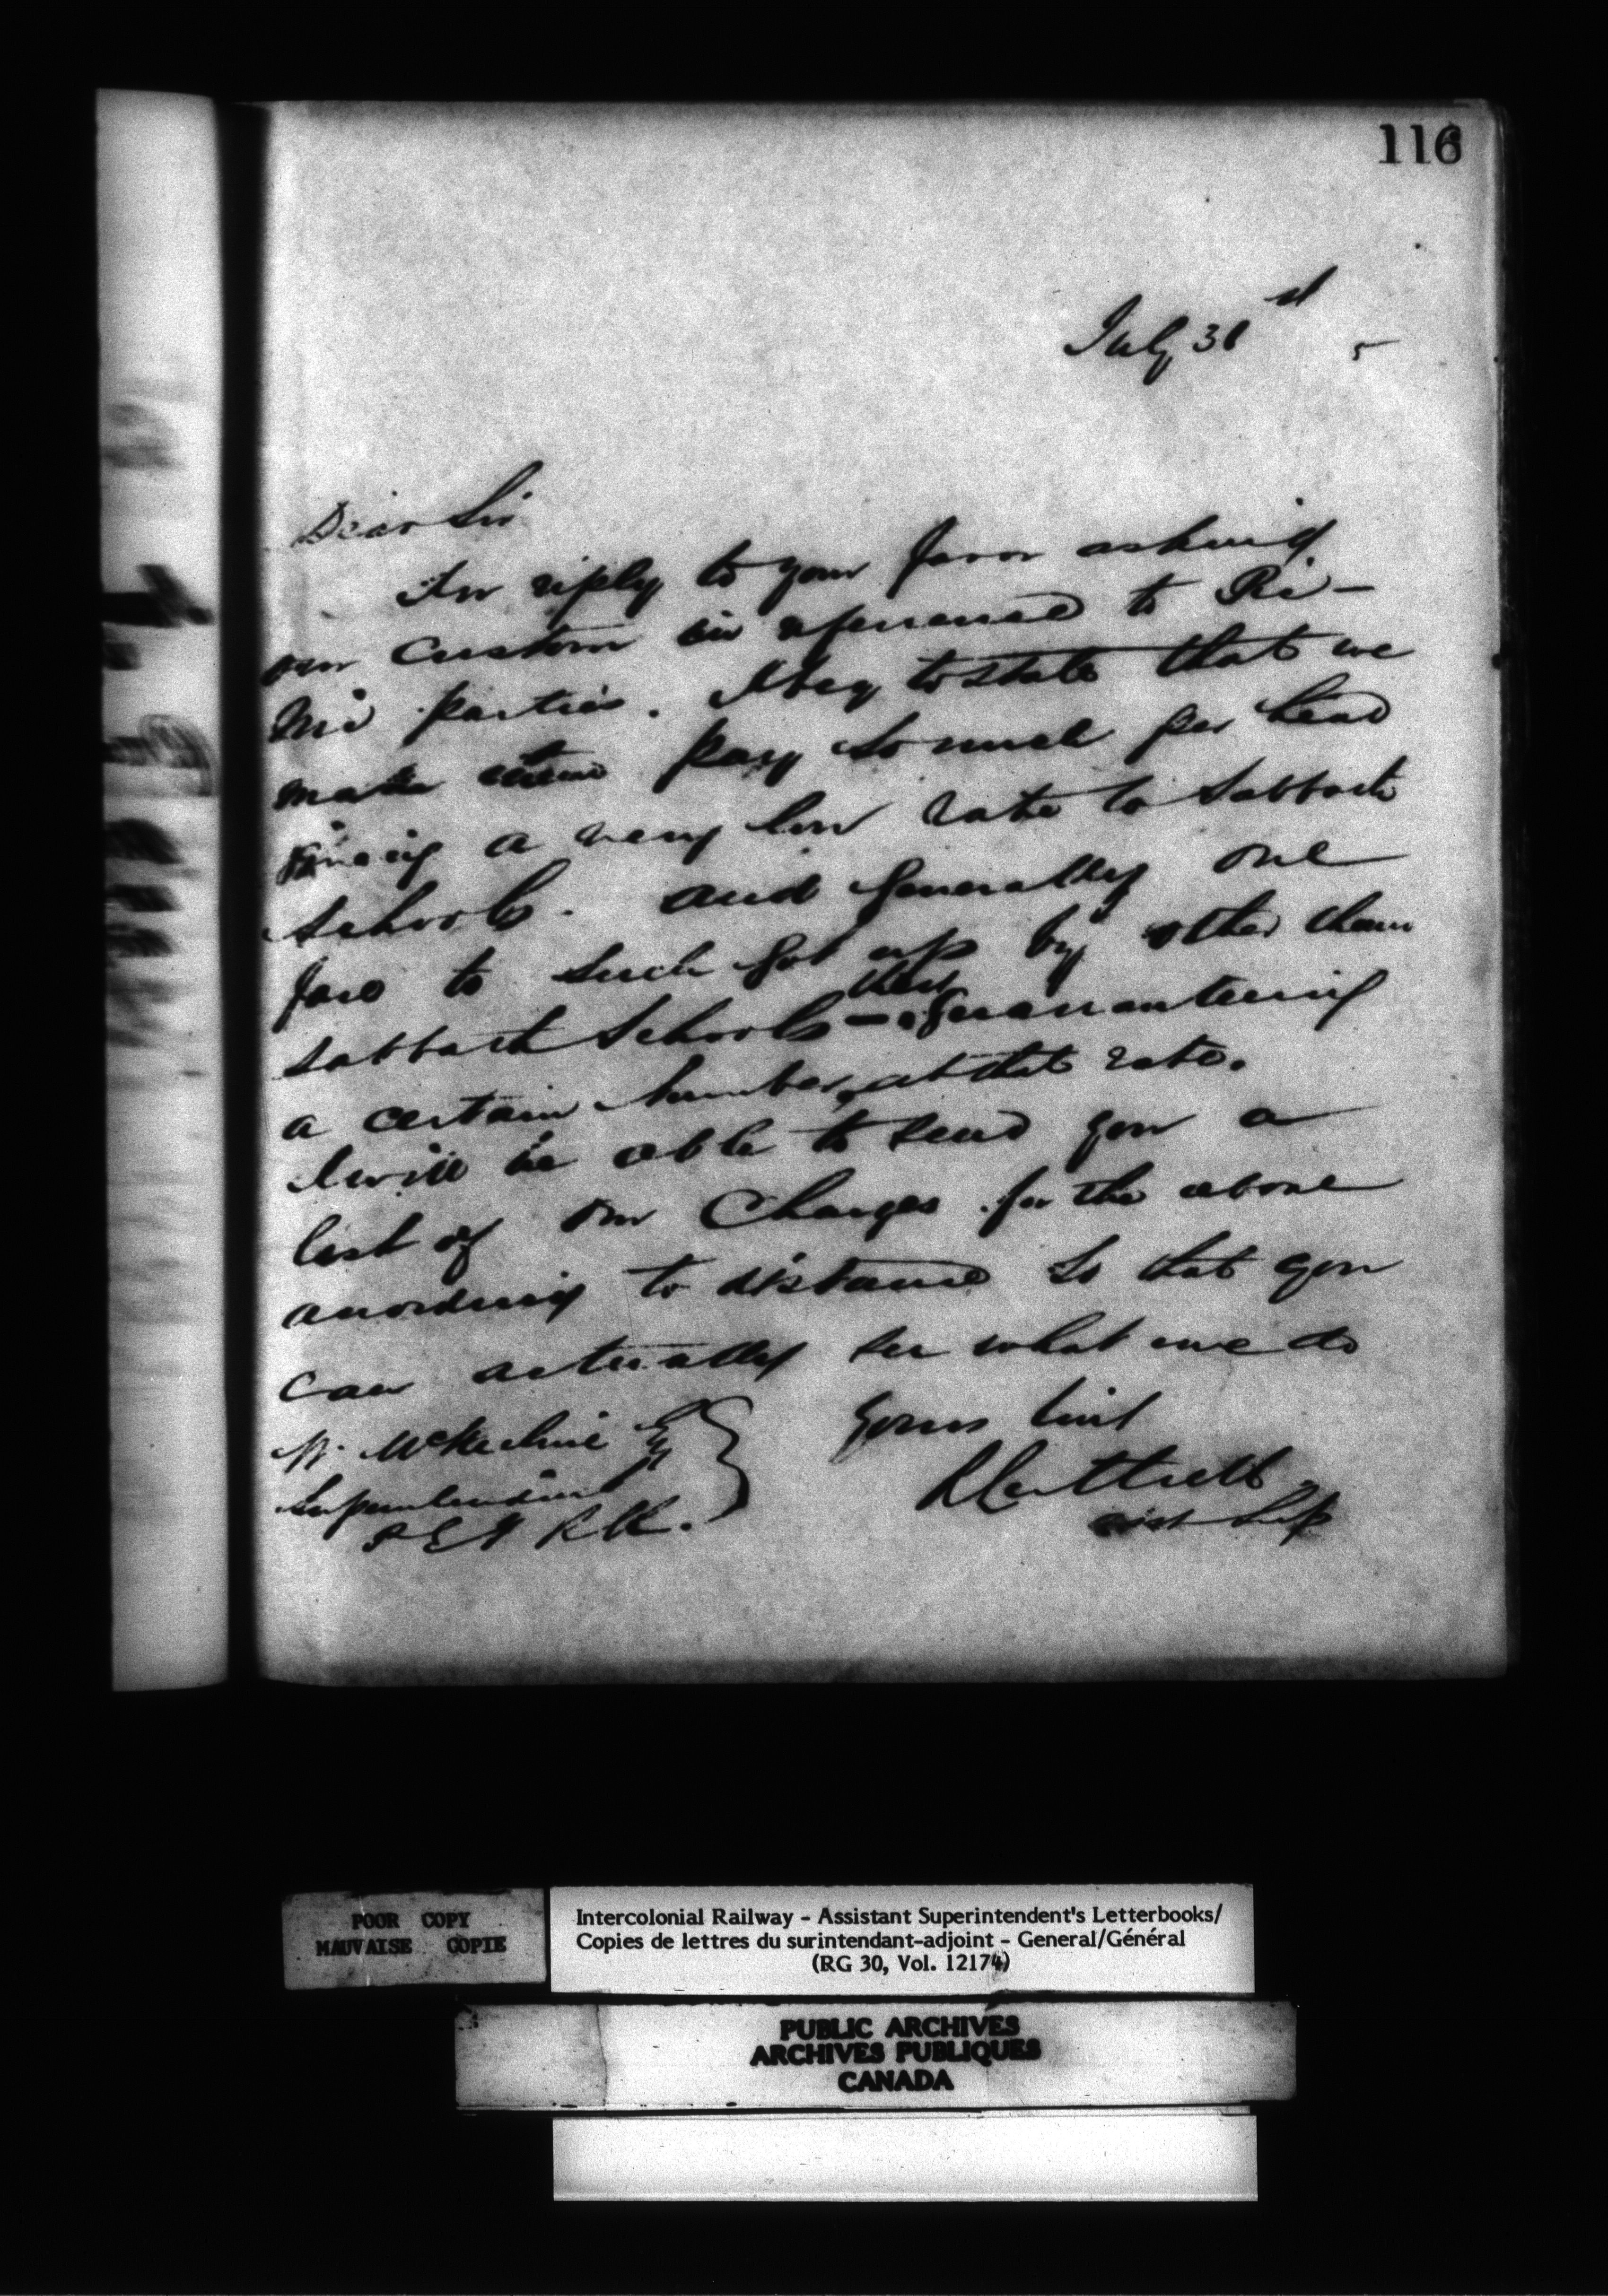 116
July 31st 5
Dear Sir
In reply to your favor asking
our custom in reference to Pic-
nic parties. I beg to state that we
make them pay so much per head
giving a very low rate to Sabbath
Schools. and generally one
fare to such got up by other than
they
Sabbath Schools - guaranteeing
a certain number at that rate.
I will be able to send you a
list of our Charges for the above
according to distance so that you
can actually see what we do
Yours truly
W. McKechnie Esq
Superintendent
P E I RR.
Luttrell
asst Sup
POOR COPY
MAUVAISE COPIE
Intercolonial Railway - Assistant Superintendent's Letterbooks/
Copies de lettres du surintendant-adjoint - General/Général
(RG 30, Vol. 12174)
PUBLIC ARCHIVES
ARCHIVES PUBLIQUES
CANADA